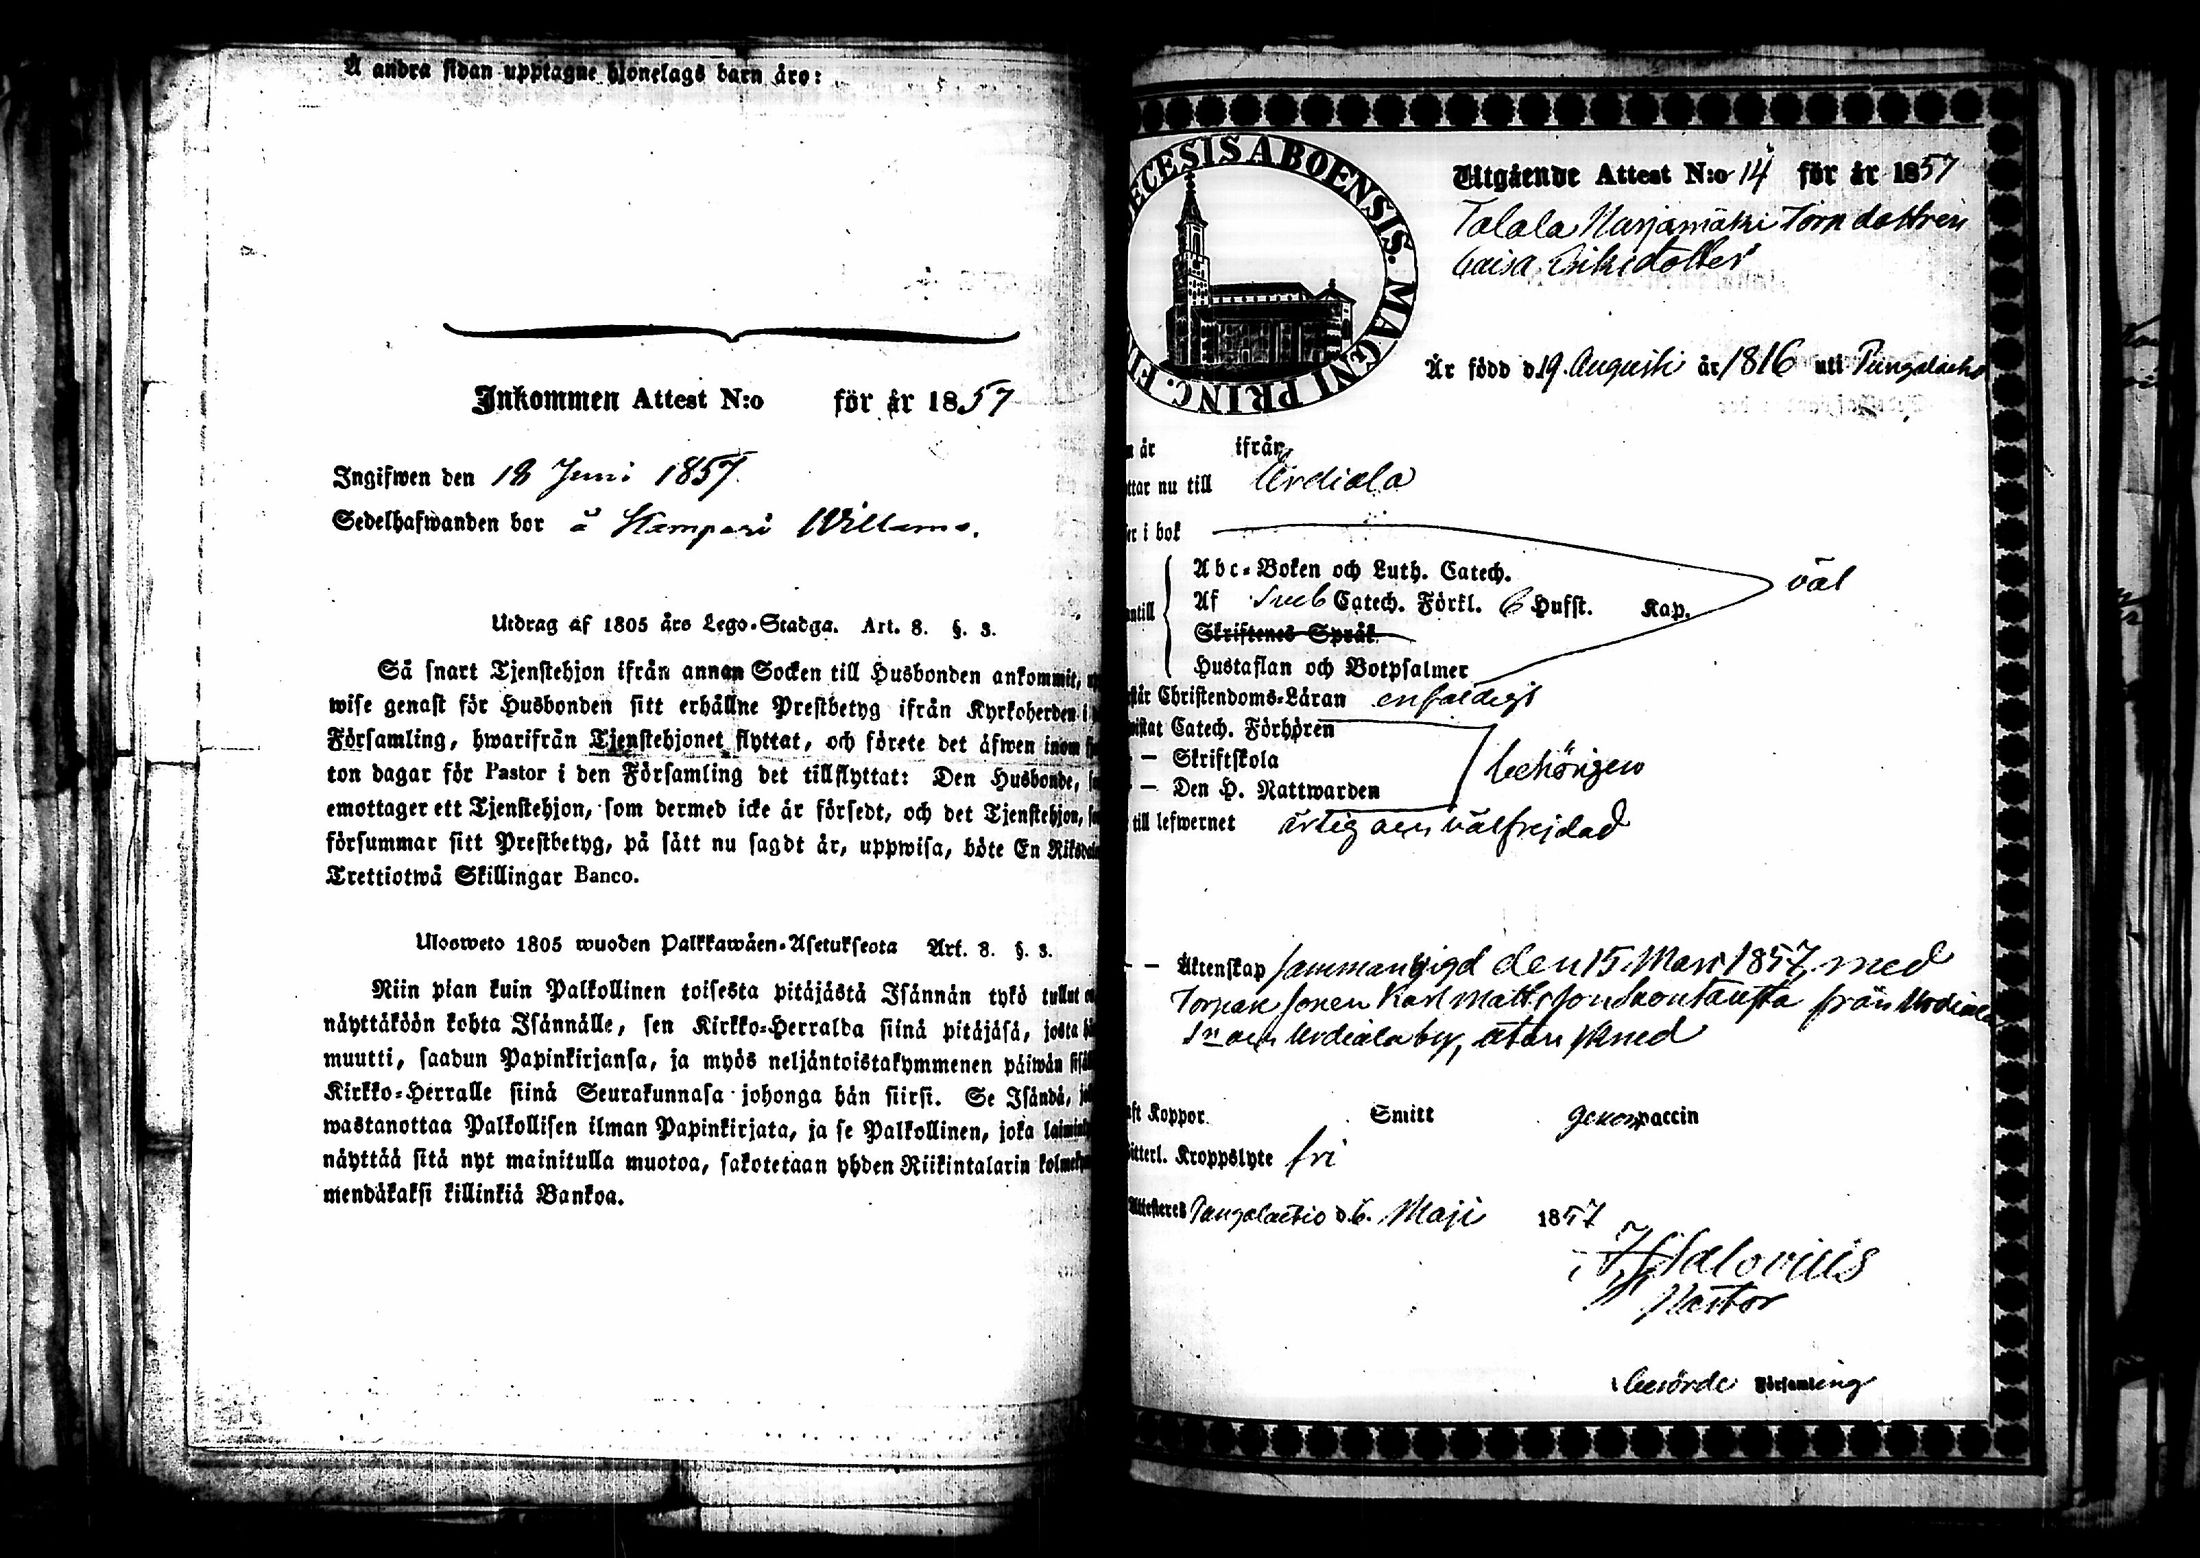 Å andra sidan upptagne hjonelags barn äro:
Inkommen Attest N:o för år 1857
Ingifwen den 18 Juni 1857.
Sedelhafwanden bor å Kampari Willama.
Utdrag af 1805 års Lego-Stadga. Art. 8. §. 3.
Så snart Tjenstehjon ifrån annan Socken till Husbonden ankommit,
wise genast för Husbonden sitt erhållne Prestbetyg ifrån Kyrkoherden i
Församling, hwarifrån Tjenstehjonet flyttat, och förete det äfwen inom
ton dagar för Pastor i den Församling det tillflyttat: Den Husbonde,
emottager ett Tjenstehjon, som dermed icke är försedt, och det Tjenstehjon,
försummar sitt Prestbetyg, på sätt nu sagdt är, uppwisa, böte En Riksdaler
Trettiotwå Skillingar Banco.
Ulosweto 1805 wuoden Palkkawäen-Asetuksesta Art. 8. §. 3.
Niin pian kuin Palkollinen toisesta pitäjästä Isännän tykö tullut
näyttäköön kohta Isännälle, sen Kirkko-Herralda siinä pitäjäsä, josta
muutti, saadun Papinkirjansa, ja myös neljäntoistakymmenen päiwän
Kirkko-Herralle siinä Seurakunnasa johonga hän siirsi. Se Isändä,
wastanottaa Palkollisen ilman Papinkirjata, ja se Palkollinen, joka
näyttää sitä nyt mainitulla muotoa, sakotetaan yhden Riikintalarin
mendäkaksi killinkiä Bankoa.
ECESIS ABOENSIS. MAGNI PRINC. FI
Utgående Attest N:o 14 för år 1857
Talala Marjamäki Torp dottren
Caisa Eriksdotter
Är född d. 19. Augusti år 1816 uti Tungalaitio
n år ifrån
ttar nu till Urdiala
er i bok
Abc-Boken och Luth. Catech. väl
Af Sveb Catech. Förkl. 6 Hufst. Kap.
Skriftenes Språk
Hustaflan och Botpsalmer
står Christendoms-Läran enfaldigt
wistat Catech. Förhören
- Skriftskola behörigen
- Den H. Nattwarden
till lefwernet ärlig och välfrejdad
- - Äktenskap sammanvigd den 15 Mars 1857, med
Torpare sonen Karl Mattsson från Urdiala
Sn och Urdiala by, utan
aft Koppor. Smitt Vaccin
witterl. Kroppslyte fri
Attesteres Tungalaitio d. 6. Maji 1857
Salovius
Pastor
i berörde Församling